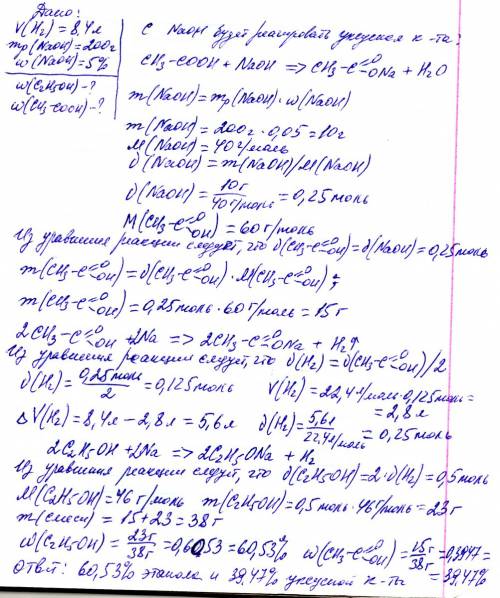 Дано:
V(H2) = 8,4 л
mр(NaOH) = 200 г
w(NaOH) = 5%
w(C2H5OH) - ?
w(CH3-COOH) - ?
С NaOH будет реагировать уксусная к-та:
CH3-COOH + NaOH => CH3-C=O ONa + H2O
m(NaOH) = mр(NaOH) · w(NaOH)
m(NaOH) = 200г · 0,05 = 10г
M(NaOH) = 40 г/моль
ϑ(NaOH) = m(NaOH)/M(NaOH)
ϑ(NaOH) = 10г / 40 г/моль = 0,25 моль
M(CH3-C=O OH) = 60 г/моль
Из уравнения реакции следует, что ϑ(CH3-C=O OH) = ϑ(NaOH) = 0,25 моль
m(CH3-C=O OH) = ϑ(CH3-C=O OH) · M(CH3-C=O OH);
m(CH3-C=O OH) = 0,25 моль · 60 г/моль = 15 г
2CH3-C=O OH + 2Na => 2CH3-C=O ONa + H2↑
Из уравнения реакции следует, что ϑ(H2) = ϑ(CH3-C=O OH)/2
ϑ(H2) = 0,25 моль / 2 = 0,125 моль V(H2) = 22,4 л/моль · 0,125 моль =
= 2,8 л
ΔV(H2) = 8,4 л - 2,8 л = 5,6 л ϑ(H2) = 5,6 л / 22,4 л/моль = 0,25 моль
2C2H5OH + 2Na => 2C2H5ONa + H2
Из уравнения реакции следует, что ϑ(C2H5OH) = 2 · ϑ(H2) = 0,5 моль
M(C2H5OH) = 46 г/моль m(C2H5OH) = 0,5 моль · 46 г/моль = 23 г
m(смеси) = 15 + 23 = 38 г
w(C2H5OH) = 23г / 38г = 0,6053 = 60,53% w(CH3-C=O OH) = 15г / 38г = 0,3947 =
= 39,47%
Ответ: 60,53% этанола и 39,47% уксусной к-ты